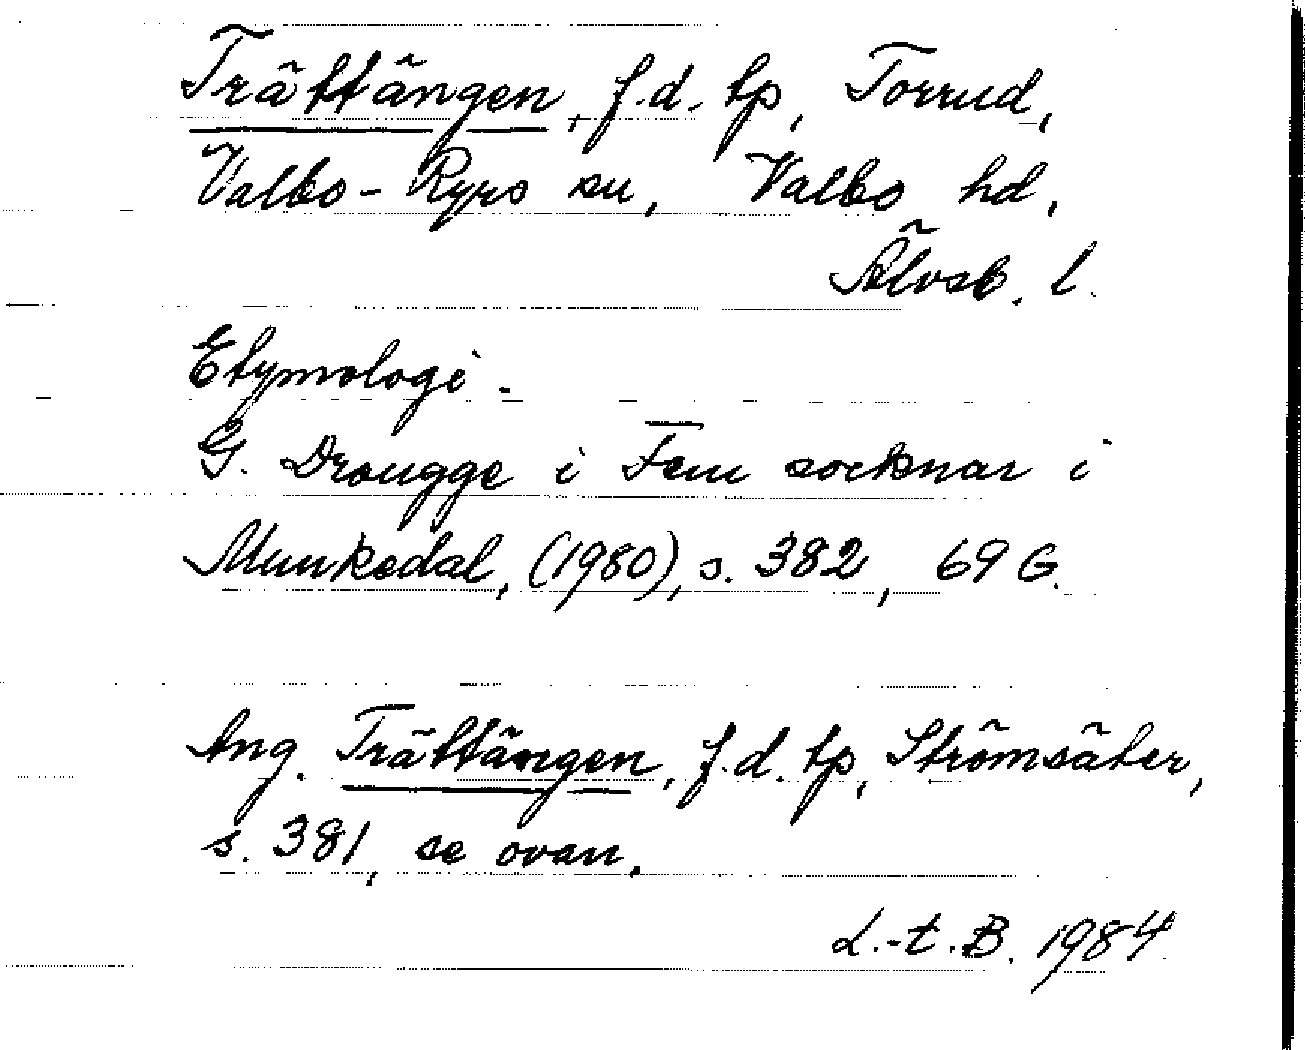 Trättängen, f.d. tp, Torrud,
Valbo-Ryrs sn, Valbo hd,
Älvsb. l.
Etymologi.
G. Drougge i Fem socknar i
Munkedal, (1980), s. 382, 69 G.
Ang. Trättängen, f.d. tp, Strömsäter,
s. 381, se ovan.
L.-t.B. 1984